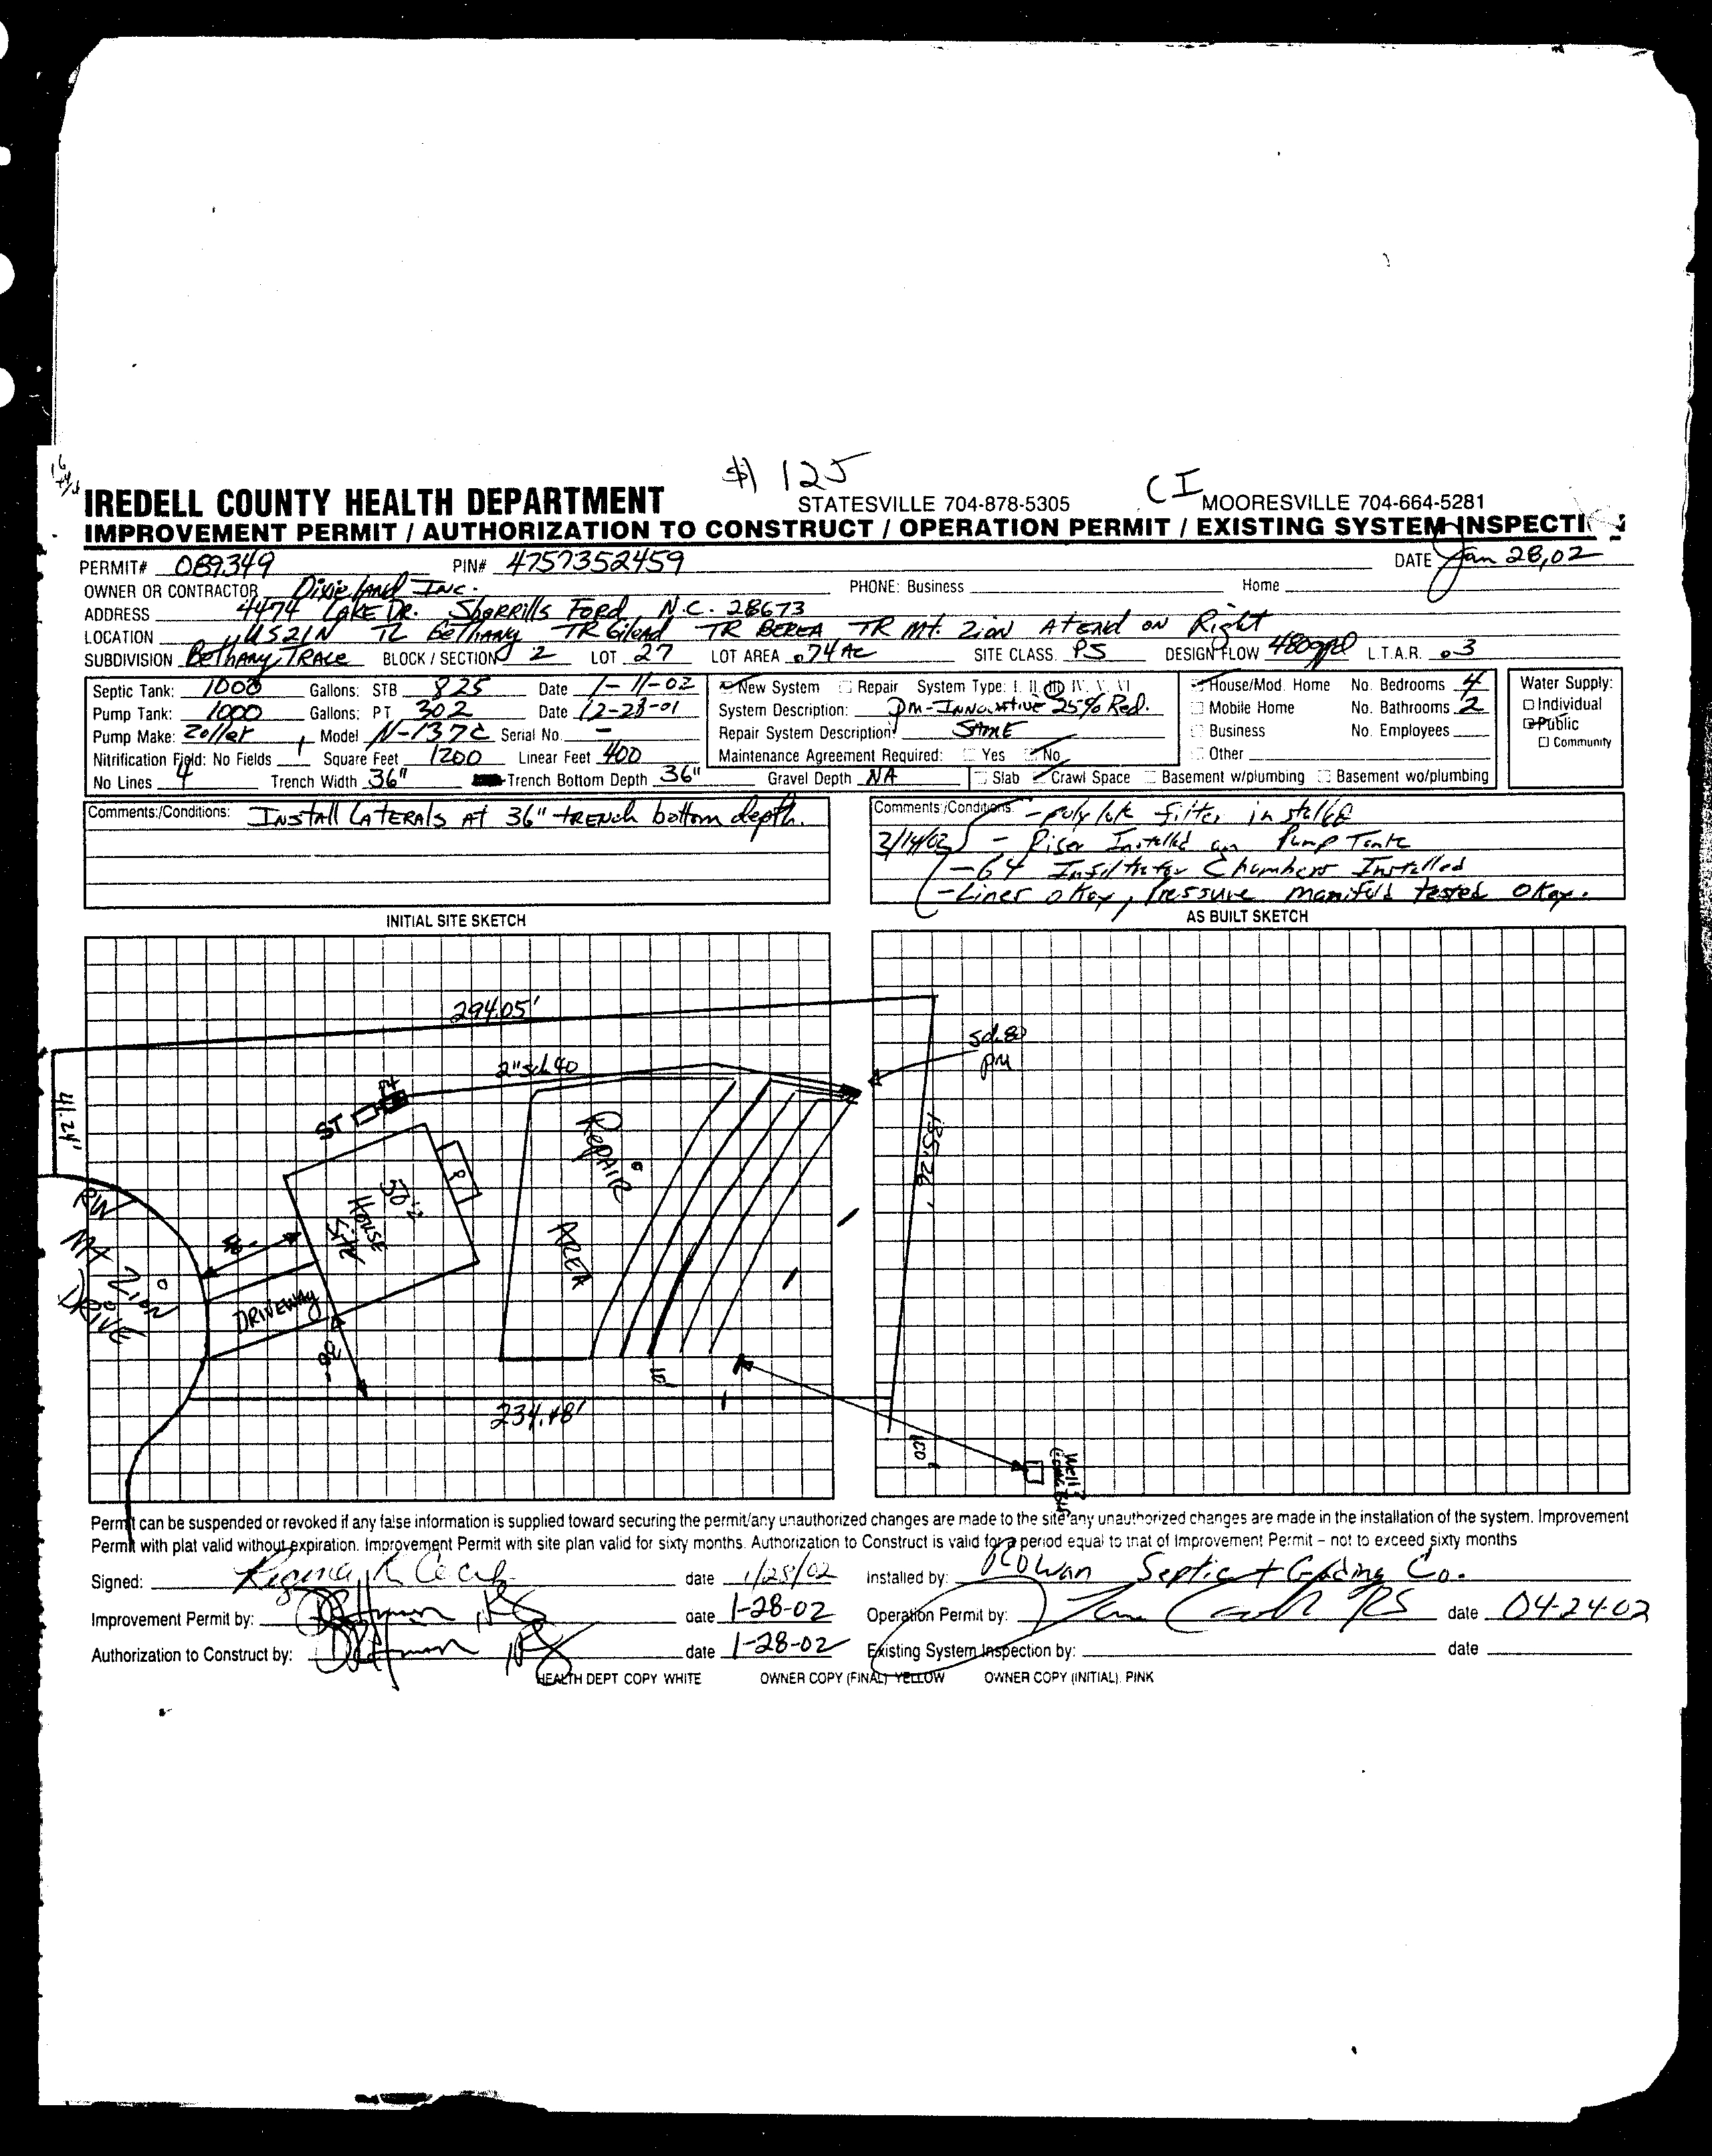 $ 125
CI
IREDELL COUNTY HEALTH DEPARTMENT STATESVILLE 704-878-5305 MOORESVILLE 704-664-5281
IMPROVEMENT PERMIT / AUTHORIZATION TO CONSTRUCT / OPERATION PERMIT / EXISTING SYSTEM INSPECTI
PERMIT# 089349 PIN# 4757352459 DATE Jan 28,02
OWNER OR CONTRACTOR Dixieland Inc. PHONE: Business Home
ADDRESS 4474 LAKE DR. Sherrills Ford, N.C. 28673
LOCATION US21N TL Bethany TR Gilead TR BEREA TR Mt. Zion At End on Right
SUBDIVISION Bethany Trace BLOCK / SECTION 2 LOT 27 LOT AREA .74 AC SITE CLASS. PS DESIGN FLOW 480gpd L.T.A.R. .3
Septic Tank: 1000 Gallons: STB 825 Date 1-11-02 New System Repair System Type: I II III IV V VI House/Mod. Home No. Bedrooms 4 Water Supply:
Pump Tank: 1000 Gallons: PT 302 Date 12-28-01 System Description: PM-Innovative 25% Red. Mobile Home No. Bathrooms 2 Individual
Pump Make: Zoller Model N-137C Serial No. - Repair System Description: SAME Business No. Employees Public
Nitrification Field: No Fields 1 Square Feet 1200 Linear Feet 400 Maintenance Agreement Required: Yes No Other Community
No Lines 4 Trench Width 36" Trench Bottom Depth 36" Gravel Depth NA Slab Crawl Space Basement w/plumbing Basement wo/plumbing
Comments:/Conditions: Install Laterals at 36" trench bottom depth.
Comments:/Conditions: - poly lok filter installed
3/14/02 - Riser Installed on Pump Tank
- 64 Infiltrator Chambers Installed
- Lines okay, pressure manifold tested okay.
INITIAL SITE SKETCH AS BUILT SKETCH
294.05'
Sch. 80
PM
2" sch 40
PT
ST
41.24'
Repair
AREA
185.26'
50'
HOUSE
Site
R/W
Mt
Zion
DRIVE
DRIVEWAY
10'
234.48'
100'
Well
Permit can be suspended or revoked if any false information is supplied toward securing the permit/any unauthorized changes are made to the site/any unauthorized changes are made in the installation of the system. Improvement
Permit with plat valid without expiration. Improvement Permit with site plan valid for sixty months. Authorization to Construct is valid for a period equal to that of Improvement Permit – not to exceed sixty months
Signed: Regina K Cecil date 1/28/02 Installed by: Rowan Septic + Grading Co.
Improvement Permit by: date 1-28-02 Operation Permit by: RS date 04-24-02
Authorization to Construct by: date 1-28-02 Existing System Inspection by: date
HEALTH DEPT COPY WHITE OWNER COPY (FINAL) YELLOW OWNER COPY (INITIAL) PINK